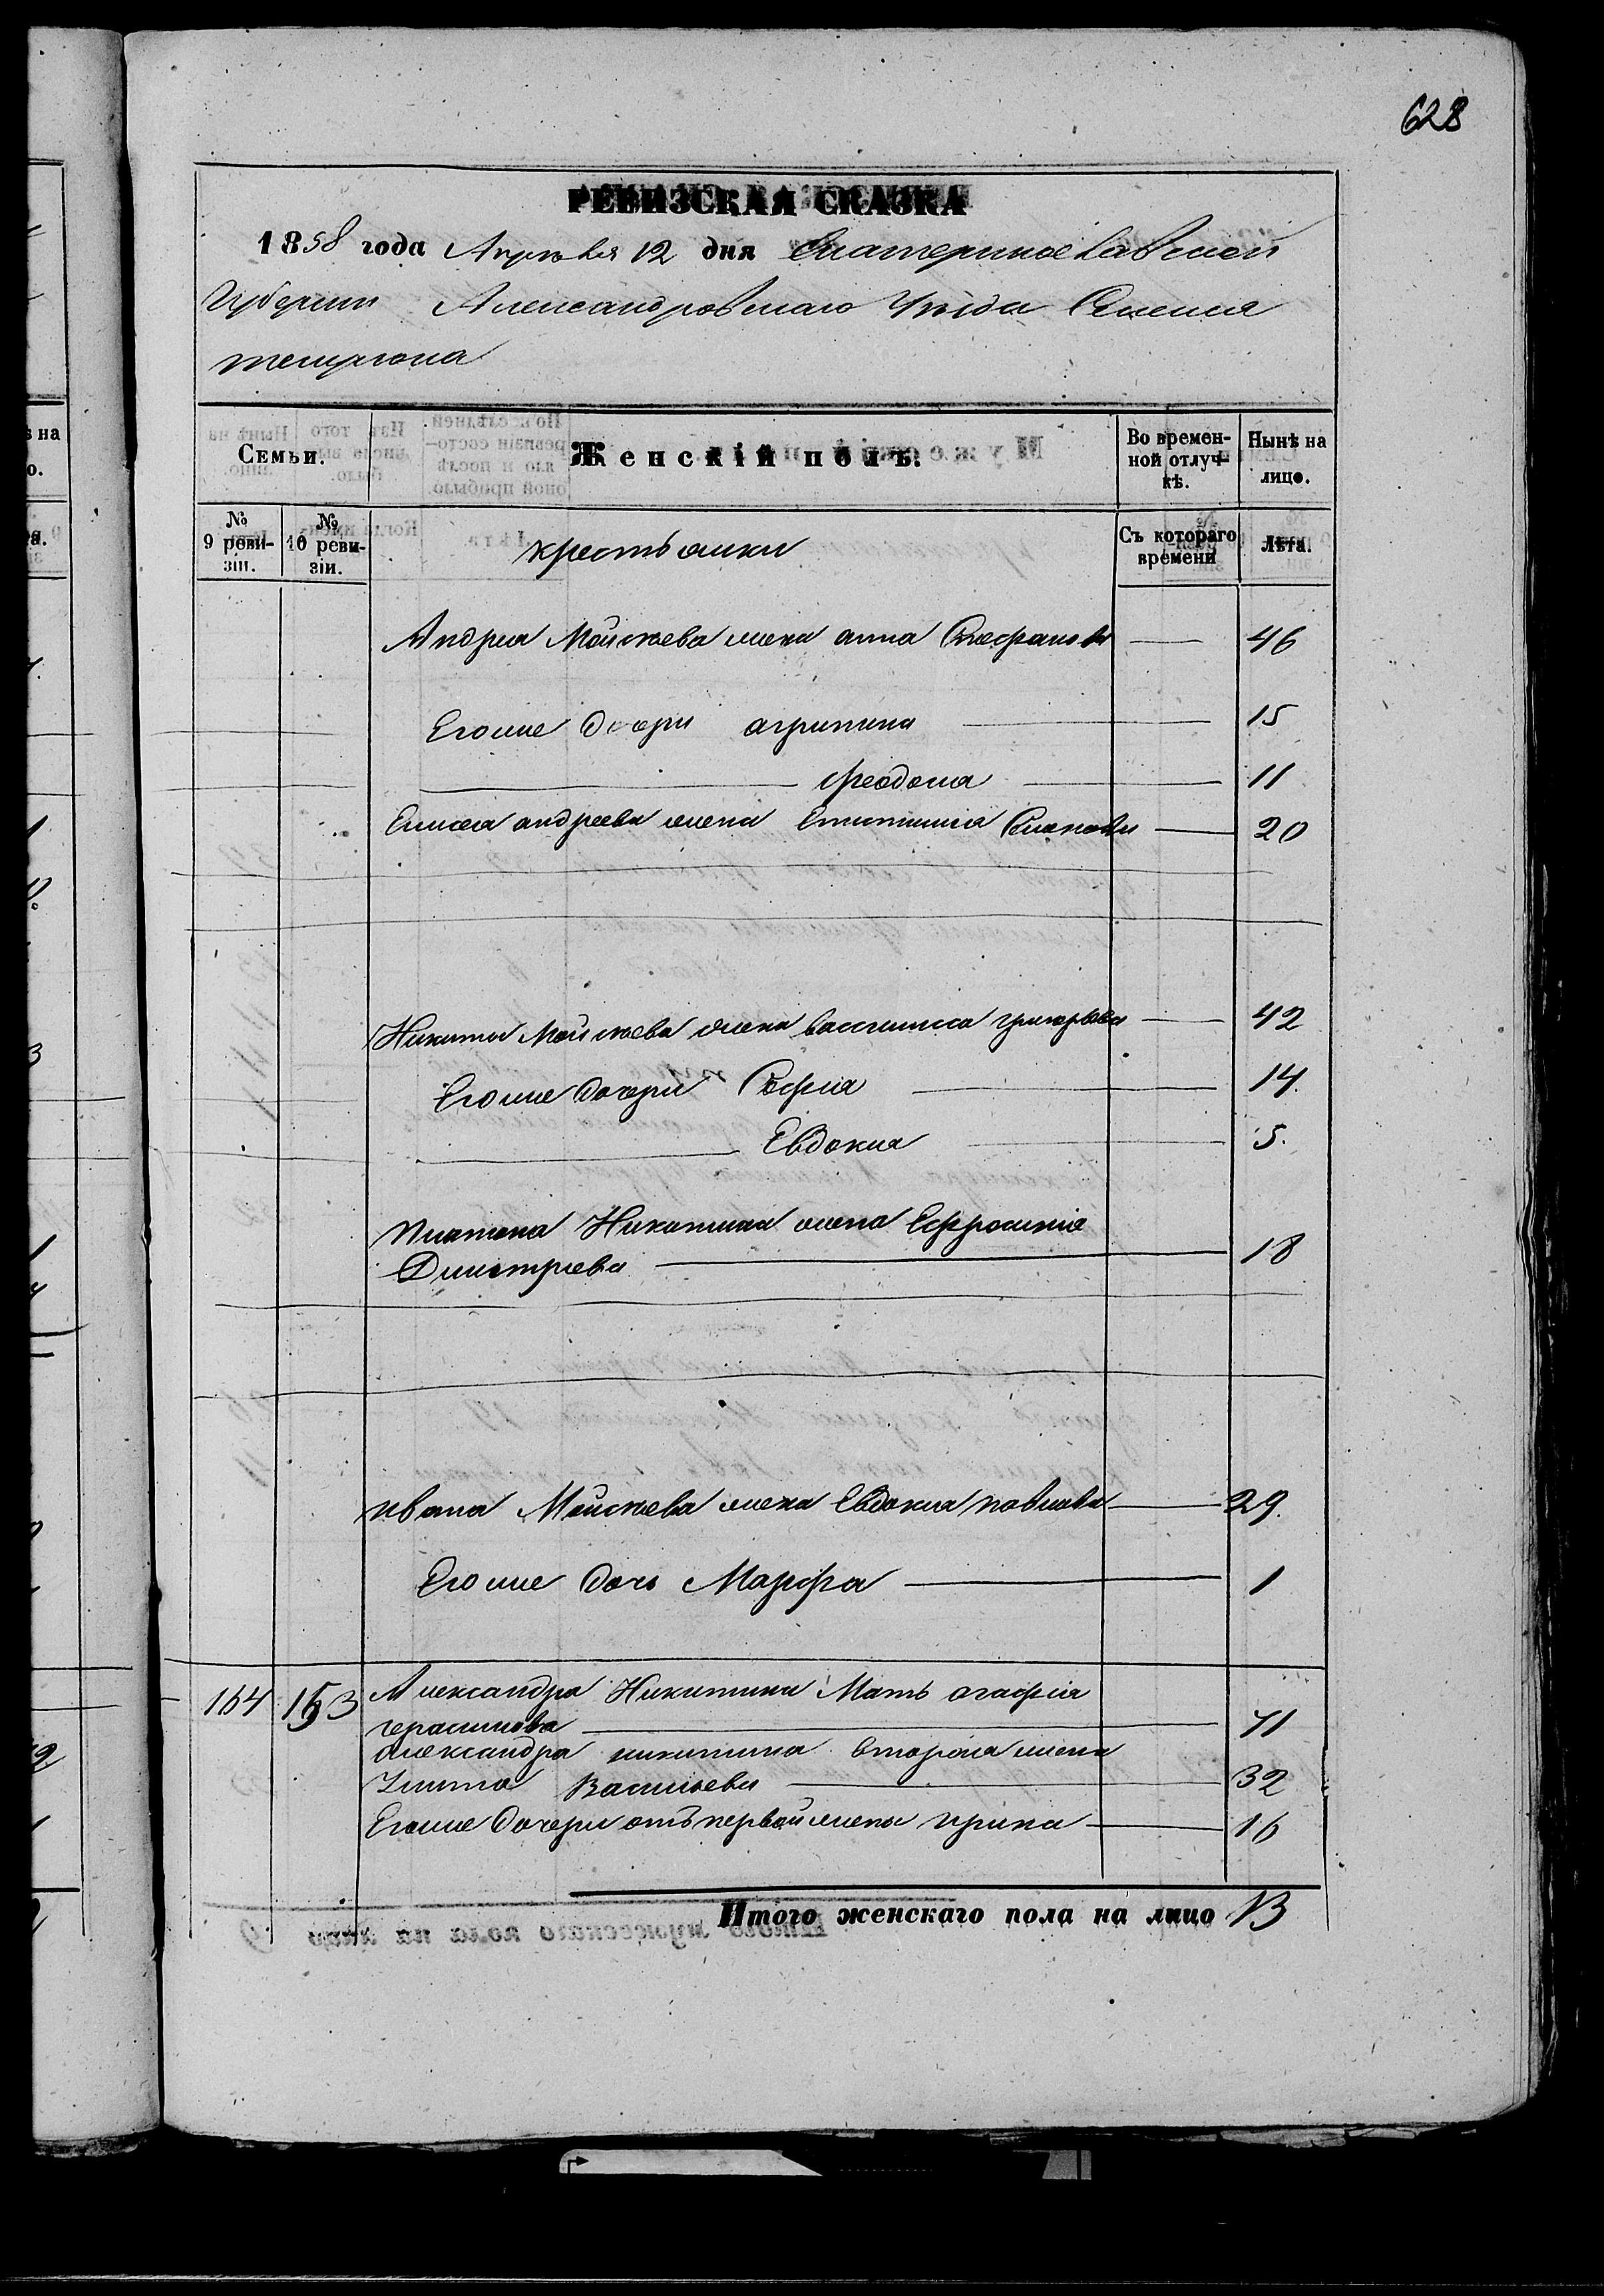 628
РЕВИЗСКАЯ СКАЗКА
1858 года Апреля 12 дня Екатеринославской
Губернии Александровскаго Уезда Селения
темрюка
Семьи.
Женскій полъ.
Во времен-
ной отлуч-
кѣ.
Нынѣ на
лицо.
№
9 реви-
зіи.
№
10 реви-
зіи.
крестьянки
Съ котораго
времени
Лѣта.
Андрея Мойсеева жена анна Стефанова 46
Егоже дочери агрипина 15
феодосия 11
Елисея андреева жена 20
Никиты Мойсеева жена василиса григорьева 42
Егоже дочери Софія 14.
Евдокия 5.
Платона Никитина жена Ефросиния
Димитриева 18
ивана Мойсеева жена Евдокия павлова 29.
Егоже дочь Марфа 1
164 153 Александра Никитина Мать агафия
герасимова 71
александра никитина вторая жена
Улита Васильева 32
Егоже дочери отъ первой жены ирина 16
Итого женскаго пола на лицо 13